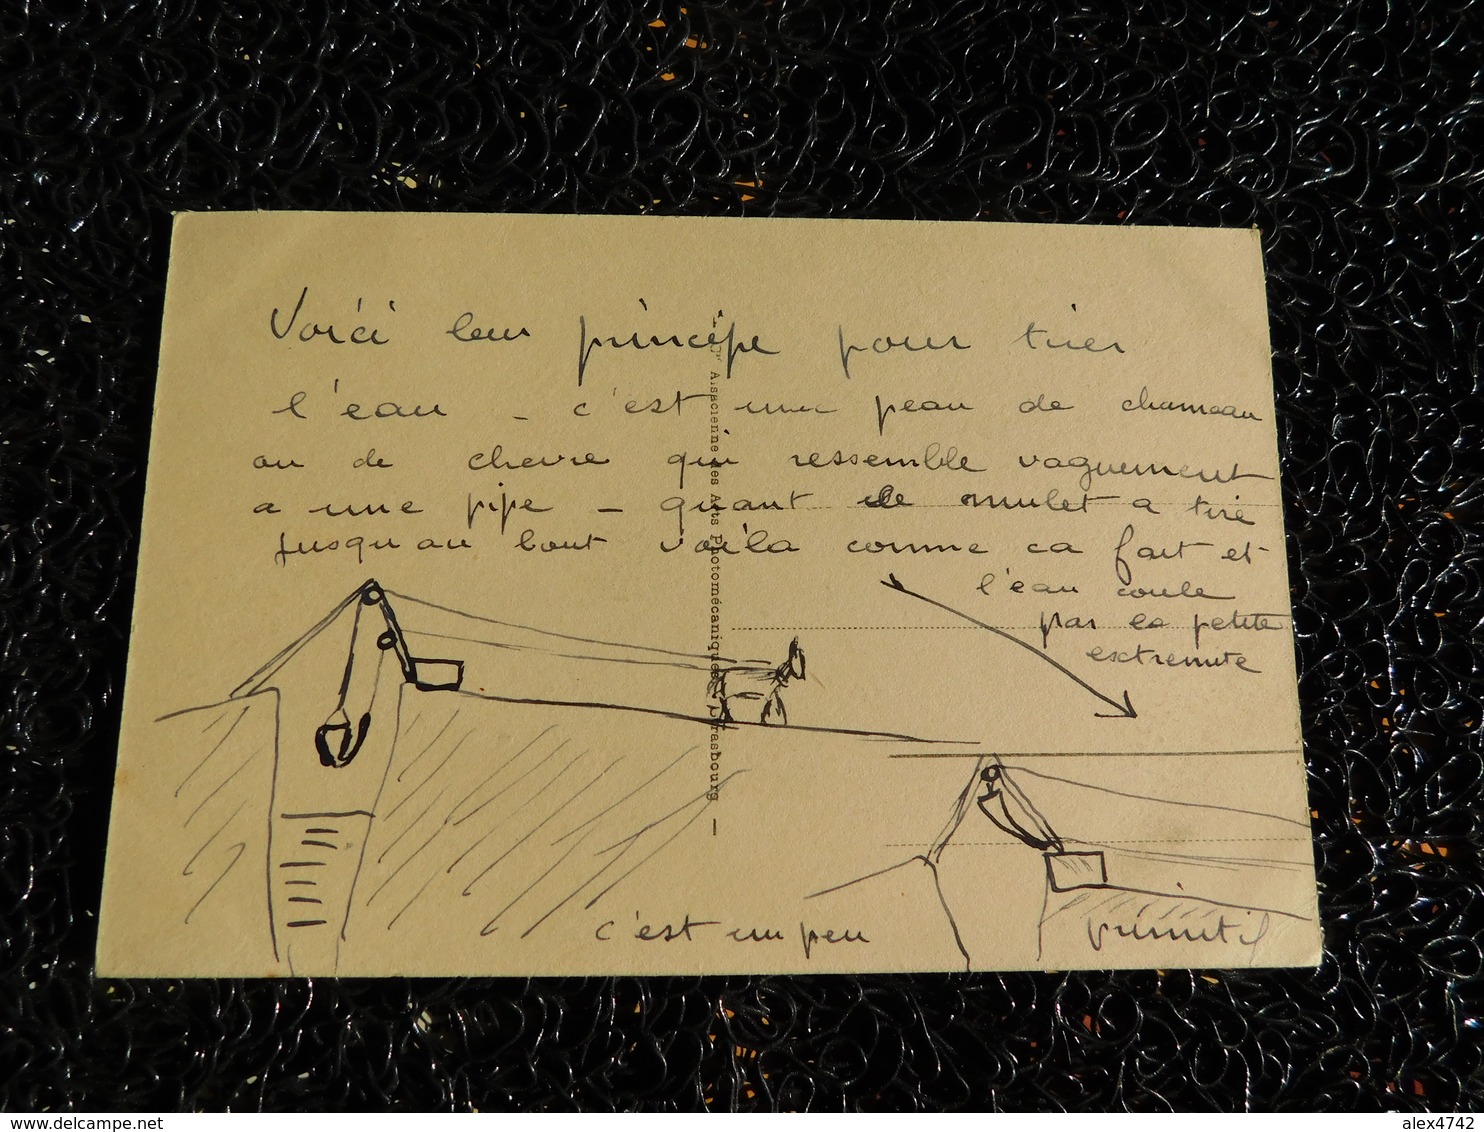 Voici leur principe pour tirer
l'eau - c'est une peau de chameau
ou de chevre qui ressemble vaguement
a une pipe - quant le mulet a tiré
jusqu'au bout voila comme ca fait et
l'eau coule
par la petite
exctremite
c'est un peu primitif
Alsacienne des Arts Photomécaniques, Strasbourg —
delcampe.net
alex4742